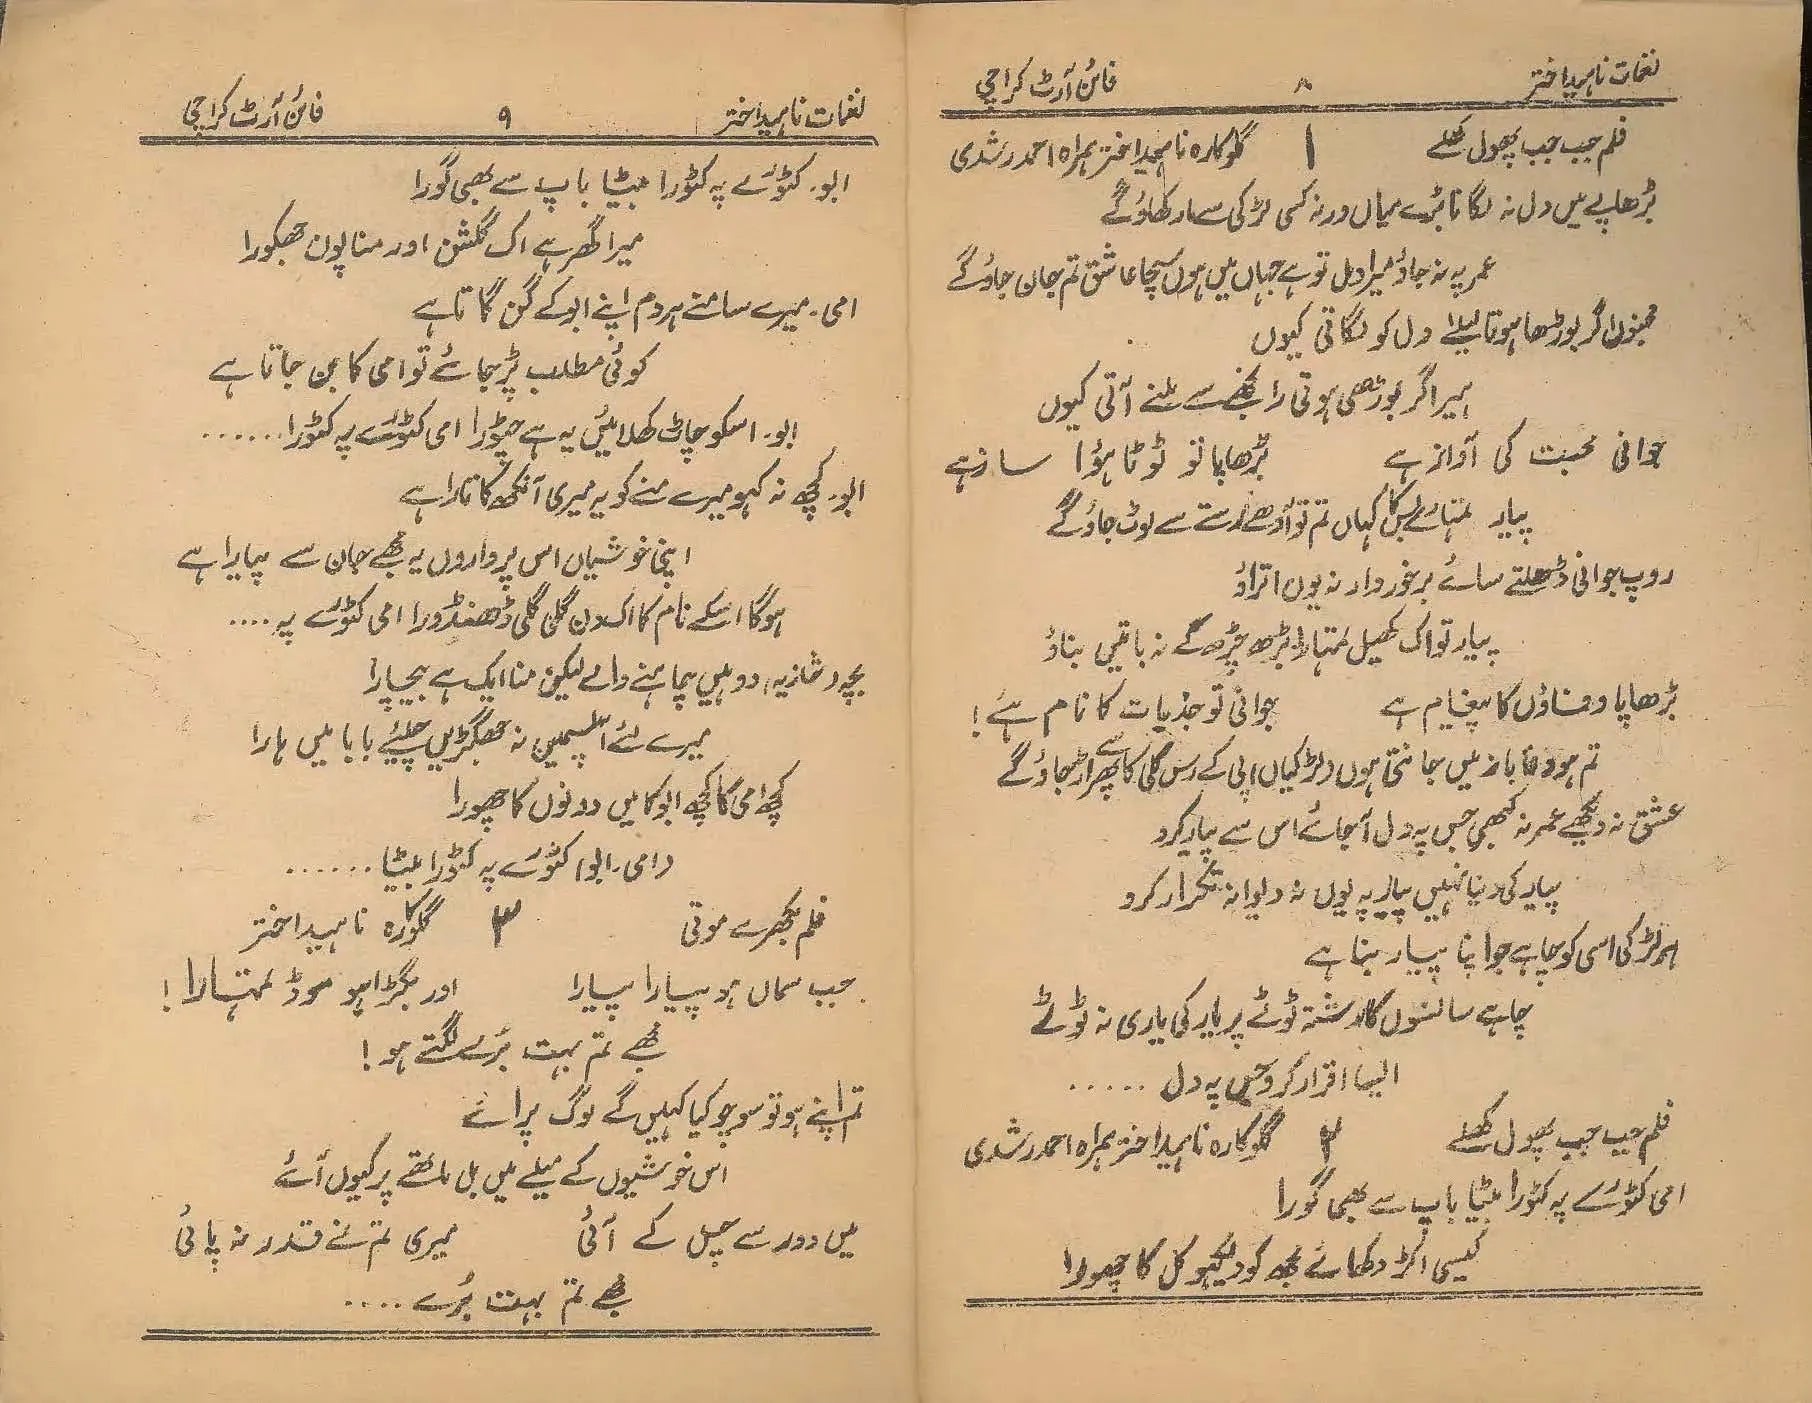 نغمات ناہید اختر ۸ فائن آرٹ کراچی
فلم جب جب پھول کھلے ۱ گلوکارہ ناہید اختر ہمراہ احمد رشدی
بڑھاپے میں دل نہ لگانا بڑے میاں ورنہ کسی لڑکی سے مار کھاؤ گے
عمر پہ نہ جاؤ میرا دل تو ہے جہاں میں ہوں سچا عاشق تم جان جاؤ گے
مجنوں اگر بوڑھا ہوتا لیلےٰ دل کو لگاتی کیوں
ہیر اگر بوڑھی ہوتی رانجھے سے ملنے آتی کیوں
جوانی محبت کی آواز ہے بڑھاپا تو ٹوٹا ہؤا ساز ہے
پیار تمہارے بس کا کہاں تم تو آدھے رستے سے لوٹ جاؤ گے
روپ جوانی ڈھلتے سائے برخوردار نہ یوں اتراؤ
پیار تو اک کھیل تمہارا بڑھ چڑھ کے نہ باتیں بناؤ
بڑھاپا وفاؤں کا پیغام ہے جوانی تو جذبات کا نام ہے!
تم ہو دغا باز میں جانتی ہوں (لڑکیاں) پی کے رس کلی کا پھر اڑ جاؤ گے
عشق نہ دیکھے عمر نہ کبھی جس پہ دل آجائے اس سے پیار کرو
پیار کی دنیا نہیں پیار پہ یوں نہ دیوانہ تکرار کرو
ہر لڑکی اسی کو چاہے جو اپنا پیار بنا ہے
چاہے سانسوں کا رشتہ ٹوٹے پر یار کی یاری نہ ٹوٹے
ایسا اقرار کرو جس پہ دل .....
فلم جب جب پھول کھلے ۲ گلوکارہ ناہید اختر ہمراہ احمد رشدی
امی کٹورے پہ کٹورا بیٹا باپ سے بھی گورا
کیسی اکڑ دکھائے مجھ کو دیکھو کل کا چھورا
نغمات ناہید اختر ۹ فائن آرٹ کراچی
ابو۔ کٹورے پہ کٹورا بیٹا باپ سے بھی گورا
میرا گھر ہے اک گلشن اور منا پون جھکورا
امی۔ میرے سامنے ہر دم اپنے ابو کے گن گاتا ہے
کوئی مطلب پڑ جائے تو امی کا بن جاتا ہے
ابو۔ اسکو چاٹ کھلائیں یہ ہے چٹورا امی کٹورے پہ کٹورا......
ابو۔ کچھ نہ کہو میرے منے کو یہ میری آنکھ کا تارا ہے
اپنی خوشیاں اس پر واروں یہ مجھے جان سے پیارا ہے
ہوگا اسکے نام کا اک دن گلی گلی ڈھنڈورا امی کٹورے پہ ....
بچہ (شازیہ) دو ہیں چاہنے والے لیکن منا ایک ہے بیچارا
میرے لئے آپسمیں نہ جھگڑیں چلیئے بابا میں ہارا
کچھ امی کا کچھ ابو کا میں دونوں کا چھورا
(امی۔ ابو) کٹورے پہ کٹورا بیٹا ......
فلم بکھرے موتی ۳ گلوکارہ ناہید اختر
جب سماں ہو پیارا پیارا اور بگڑا ہو موڈ تمہارا!
مجھے تم بہت بُرے لگتے ہو!
تم اپنے ہو تو سوچو کیا کہیں گے لوگ پرائے
اس خوشیوں کے میلے میں بل ماتھے پر کیوں آئے
میں دور سے چل کے آئی میری تم نے قدر نہ پائی
مجھے تم بہت بُرے ....